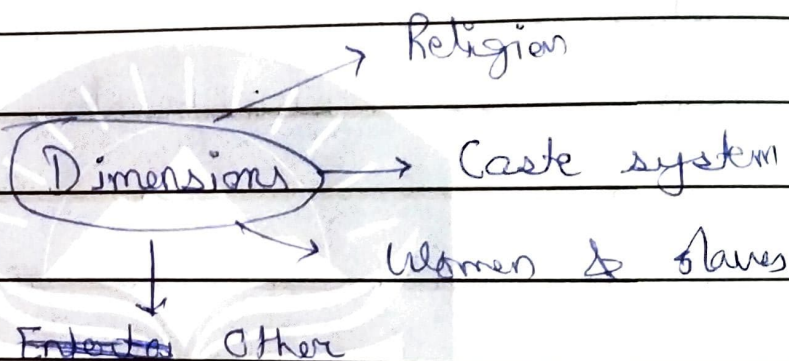 Religion
Dimensions
Caste system
Women & slaves
Other